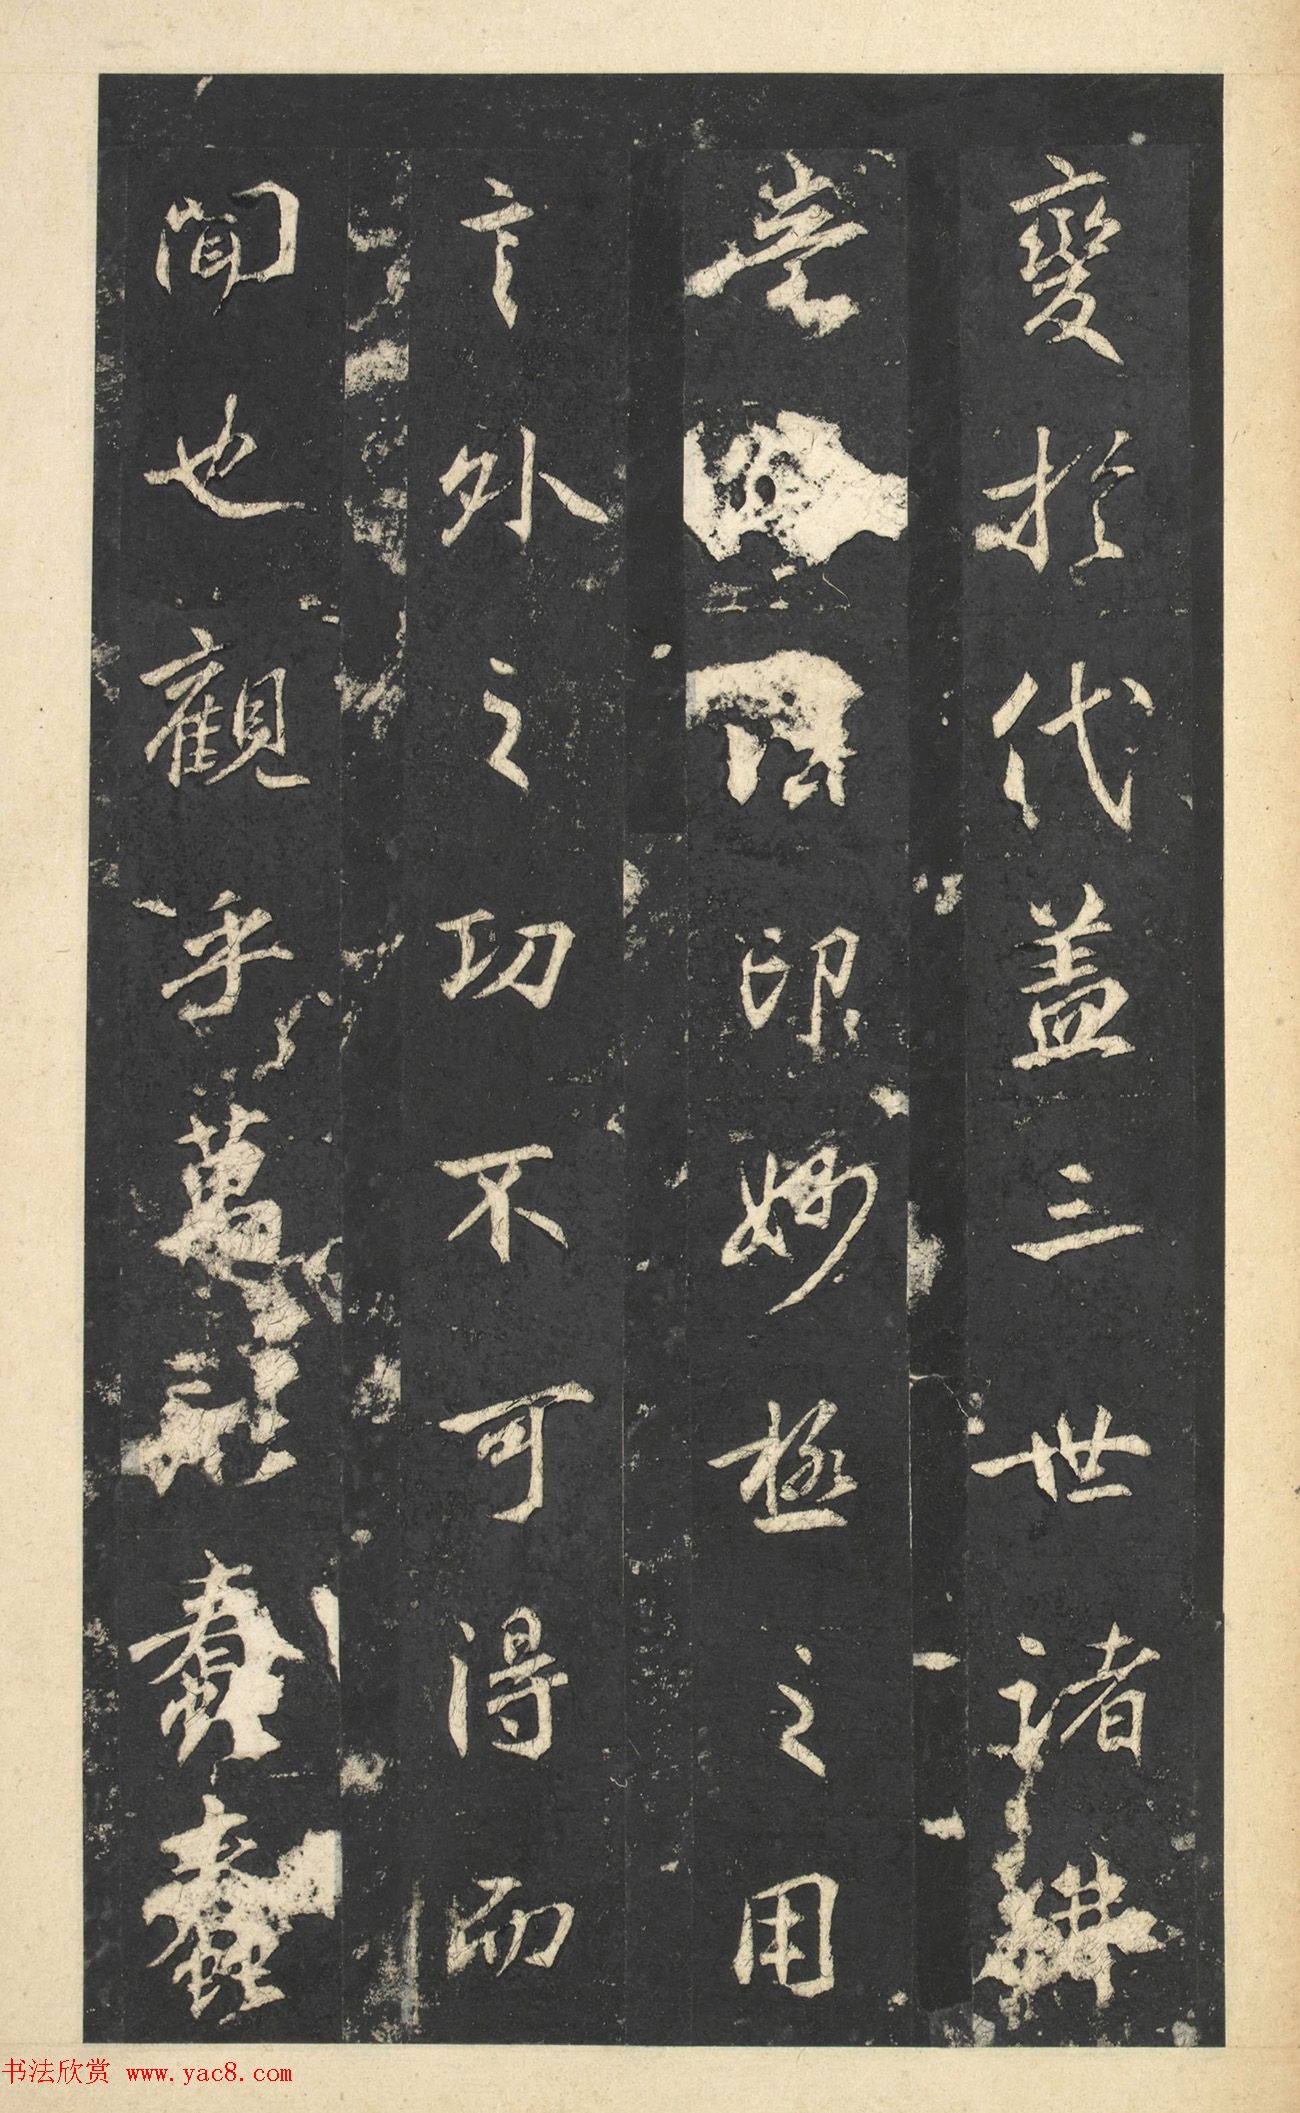 變於代蓋三世諸
印妙極之用
言外之功不可得而
聞也觀乎萬蠢蠢
书法欣赏 www.yac8.com